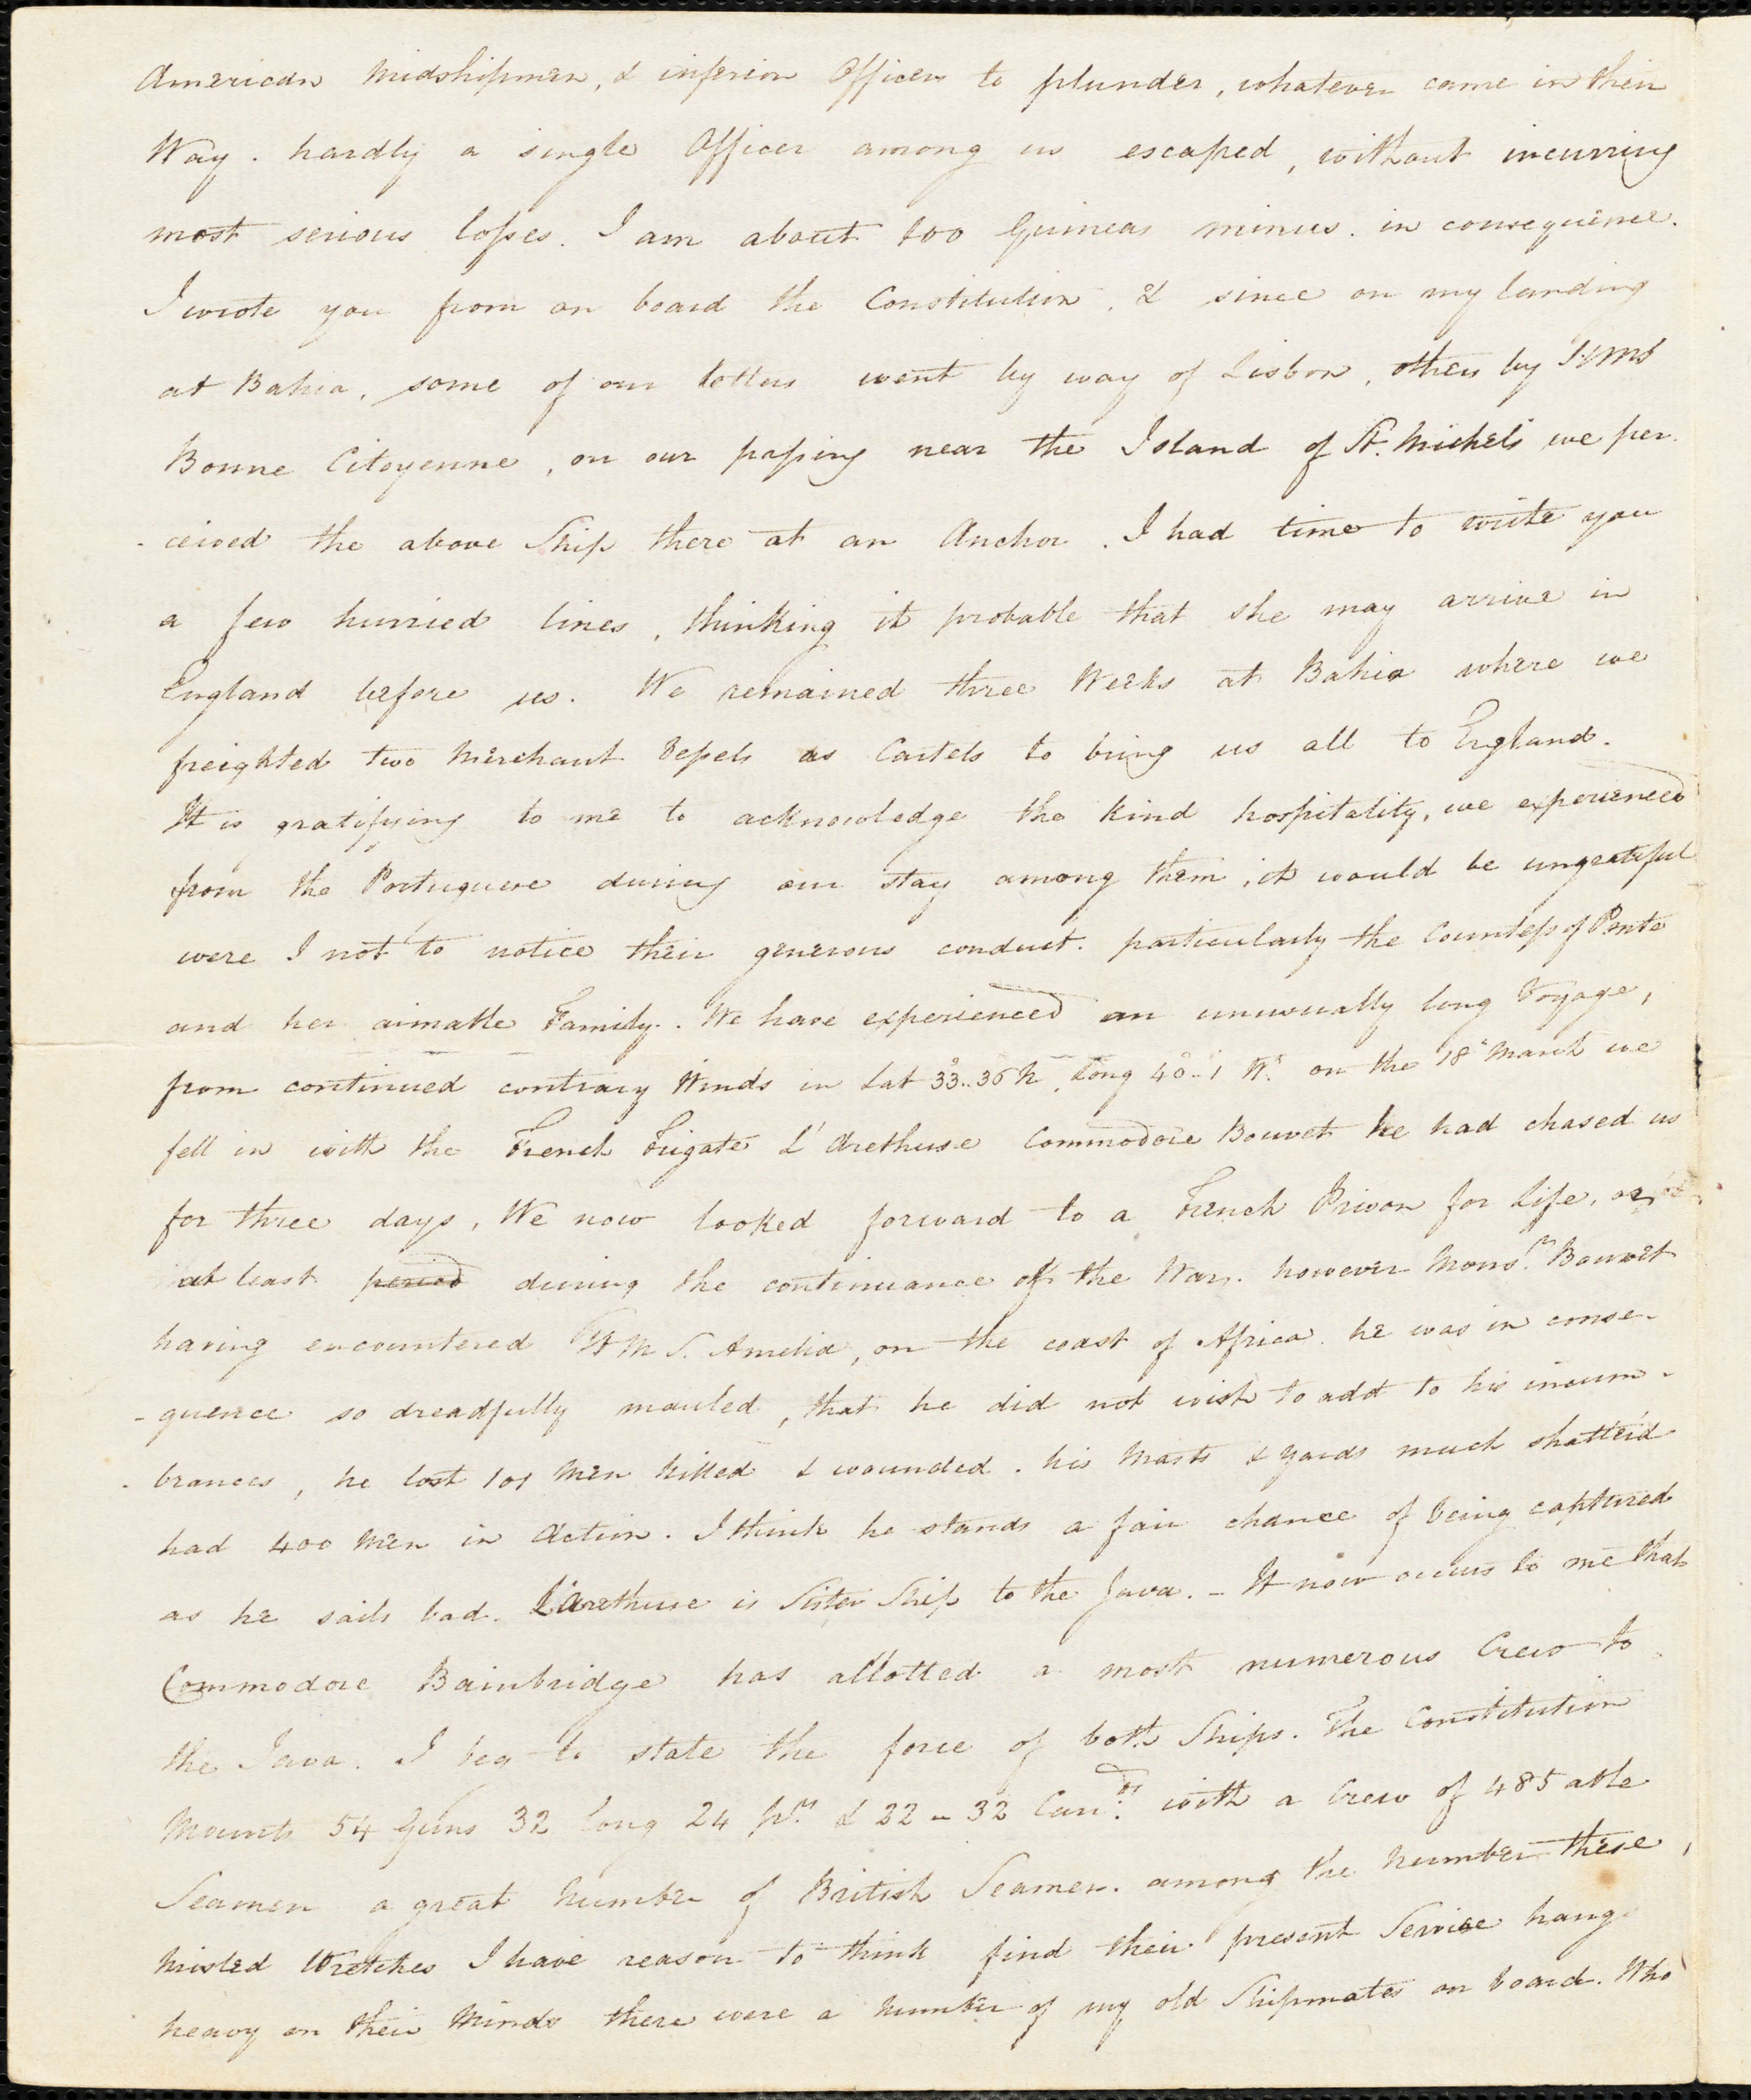 American Midshipmen, & inferior Officers to plunder, whatever came in their
Way. hardly a single Officer among us escaped, without incurring
most serious losses. I am about 100 Guineas minus. in consequence.
I wrote you from on board the Constitution, & since on my landing
at Bahia, some of our letters went by way of Lisbon, others by HMS
Bonne Citoyenne, on our passing near the Island of St. Michels we per-
-ceived the above Ship there at an Anchor. I had time to write you
a few hurried lines, thinking it probable that she may arrive in
England before us. We remained three Weeks at Bahia where we
freighted two Merchant Vessels as Cartels to bring us all to England.
It is gratifying to me to acknowledge the kind hospitality, we experienced
from the Portuguese during our stay among them, it would be ungrateful
were I not to notice their generous conduct. particularly the Countess of Ponte
and her aimable Family. We have experienced an unusually long Voyage,
from continued contrary Winds in Lat 33..36 N, Long 40..1 Wt. on the 18th March we
fell in with the French Frigate L'Arethuse Commodore Bouvet he had chased us
for three days, We now looked forward to a French Prison for Life, or
at least period during the continuance of the War. however Monsr. Bouvet
having encountered H M S. Amelia, on the coast of Africa. he was in conse-
-quence so dreadfully mauled, that he did not wish to add to his incum-
-brances, he lost 101 Men killed & wounded. his Masts & Yards much shatter'd
had 400 Men in Action. I think he stands a fair chance of being captured
as he sails bad. L'Arethuse is Sister Ship to the Java. - It now occurs to me that
Commodore Bainbridge has allotted a most numerous Crew to
the Java. I beg to state the force of both Ships. The Constitution
Mounts 54 Guns 32 long 24 prs & 22 - 32 Carrds. with a Crew of 485 able
Seamen a great Number of British Seamen. among the Number these
Misled Wretches I have reason to think find their present Service hang
heavy on their Minds there were a Number of my old Shipmates on board. Who